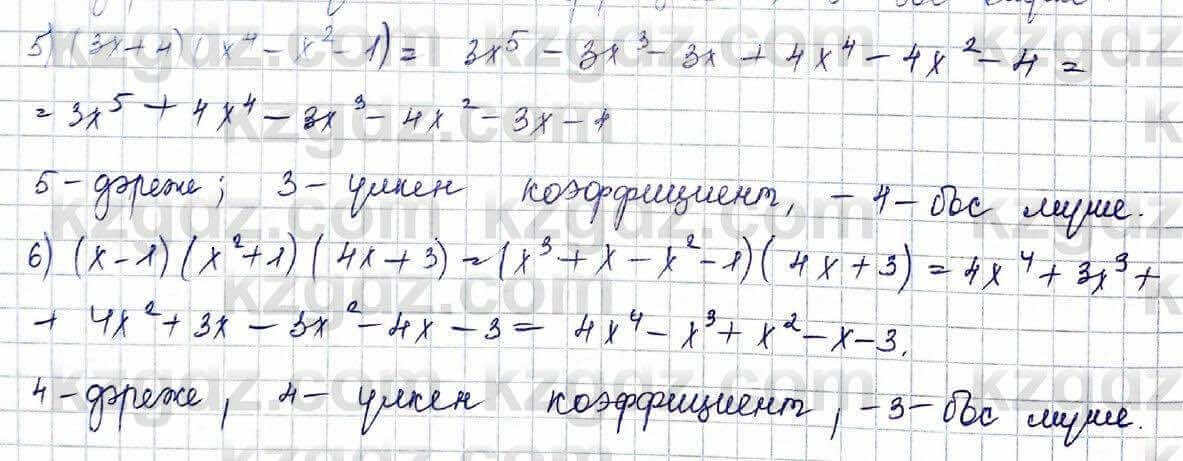 5) (3x + 4) (x⁴ - x² - 1) = 3x⁵ - 3x³ - 3x + 4x⁴ - 4x² - 4 =
= 3x⁵ + 4x⁴ - 3x³ - 4x² - 3x - 4
5 - дәреже; 3 - үлкен коэффициент, - 4 - бос мүше.
6) (x - 1) (x² + 1) (4x + 3) = (x³ + x - x² - 1) (4x + 3) = 4x⁴ + 3x³ +
+ 4x² + 3x - 3x² - 4x - 3 = 4x⁴ - x³ + x² - x - 3.
4 - дәреже, 4 - үлкен коэффициент, - 3 - бос мүше.